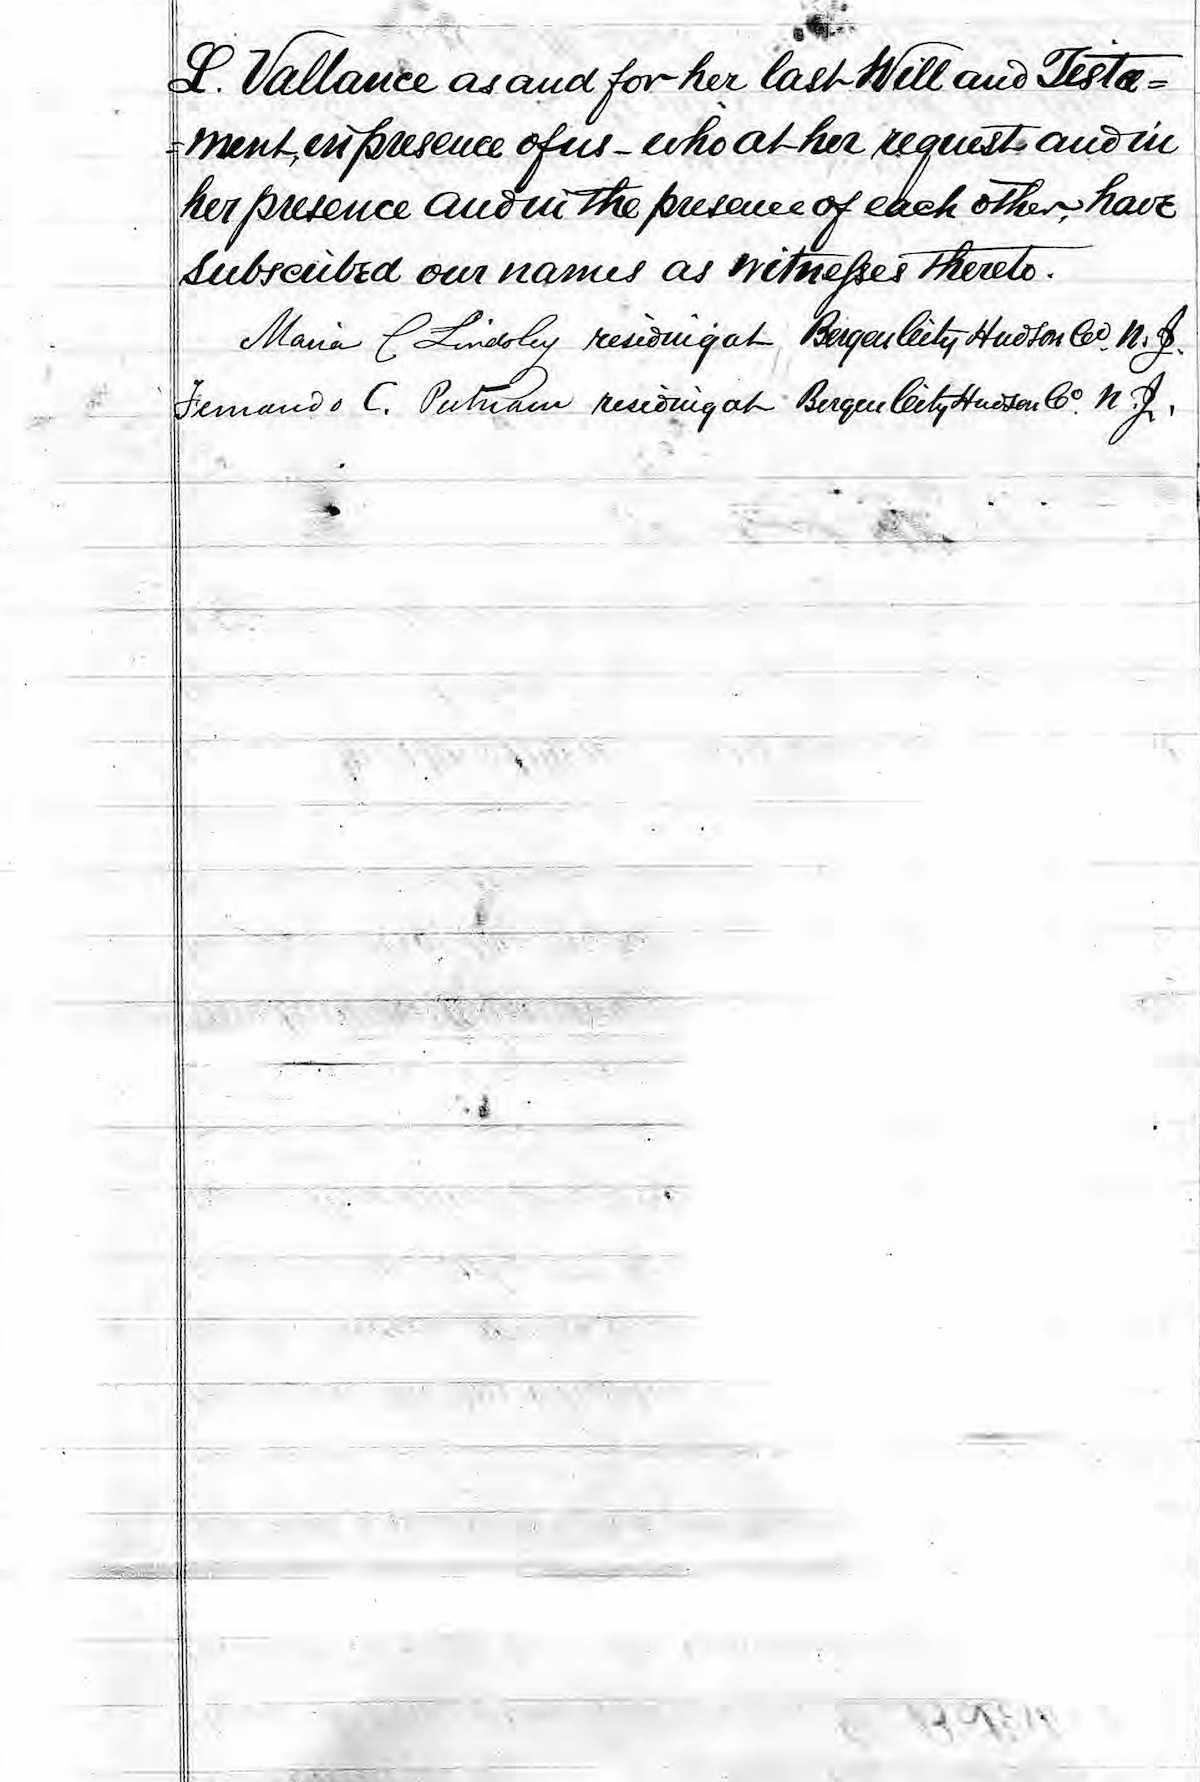 L. Vallance as and for her last Will and Testa=
=ment, in presence of us - who at her request and in
her presence and in the presence of each other, have
subscribed our names as witnesses thereto.
Maria C Lindsley residing at Bergen City Hudson Co. N. J.
Fernando C. Putnam residing at Bergen City Hudson Co. N. J.